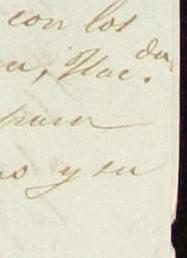 con los
a, Hac.da
para
s y su